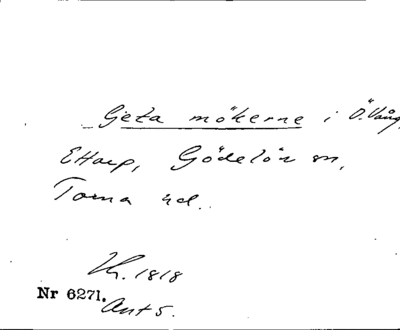 Geta mökerne i Ö. Vång,
Ettarp, Gödelöv sn,
Torna hd.
Lh. 1818
Nr 6271.
Ant 5.